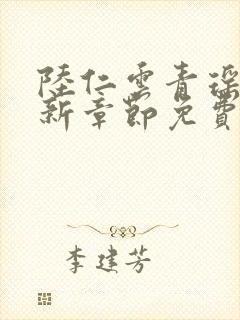 陸仁雲青瑤
新章節免費
李建芳